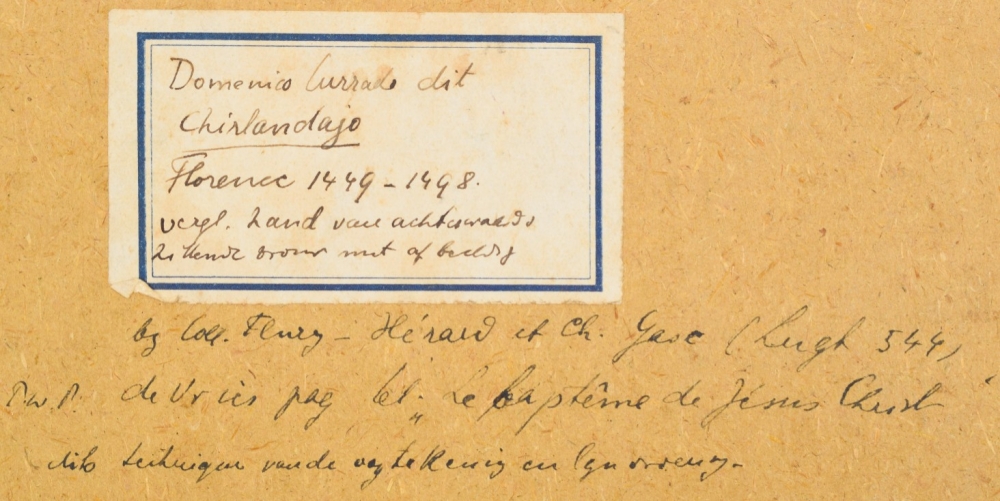 Domenico Currado dit
Ghirlandajo
Florence 1449 - 1498.
vergl. hand van achterwaards
zittende vrouw met afbeeldg
by Coll. Fleury - Hérard et Ch. Gasc (Lugt 544,
P.W.P. de Vries pag "Le baptême de Jésus Christ
dito van de